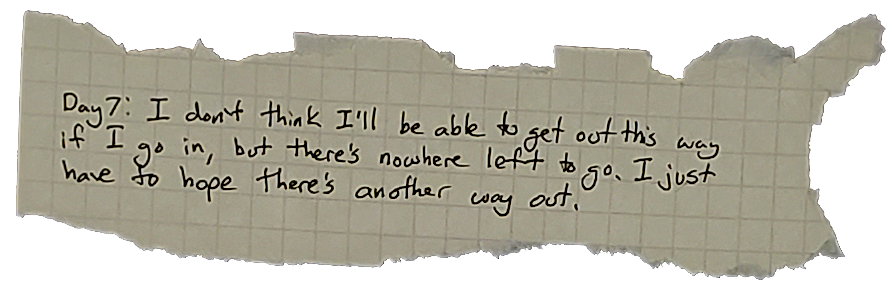 Day 7: I don't think I'll be able to get out this way
if I go in, but there's nowhere left to go. I just
have to hope there's another way out.